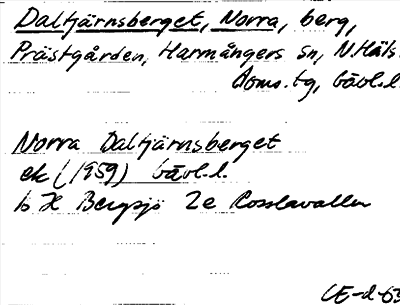 Daltjärnsberget, Norra, berg,
Prästgården, Harmångers sn, N.Häls.
Doms.tg, Gävl.l.
Norra Daltjärnsberget
ek (1959) Gävl.l.
Bergsjö 2e Rosslavallen
CE-d-63